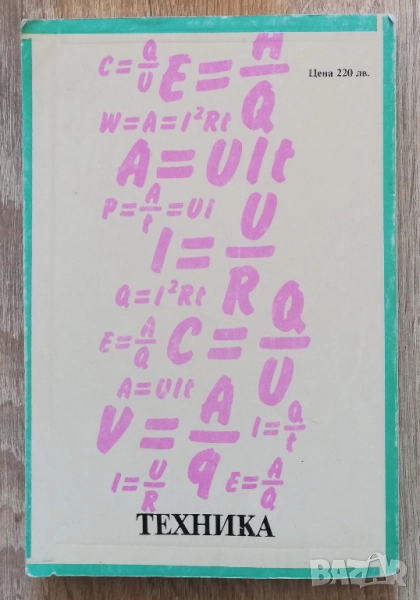 C=Q/U E=A/Q
Цена 220 лв.
W=A=I²Rt
A=UIt
P=A/t=Ui
I=U/R
Q=I²Rt
E=A/Q C=Q/U
A=UIt
V=A/q I=Q/t
I=U/R E=A/Q
ТЕХНИКА
BAZAR